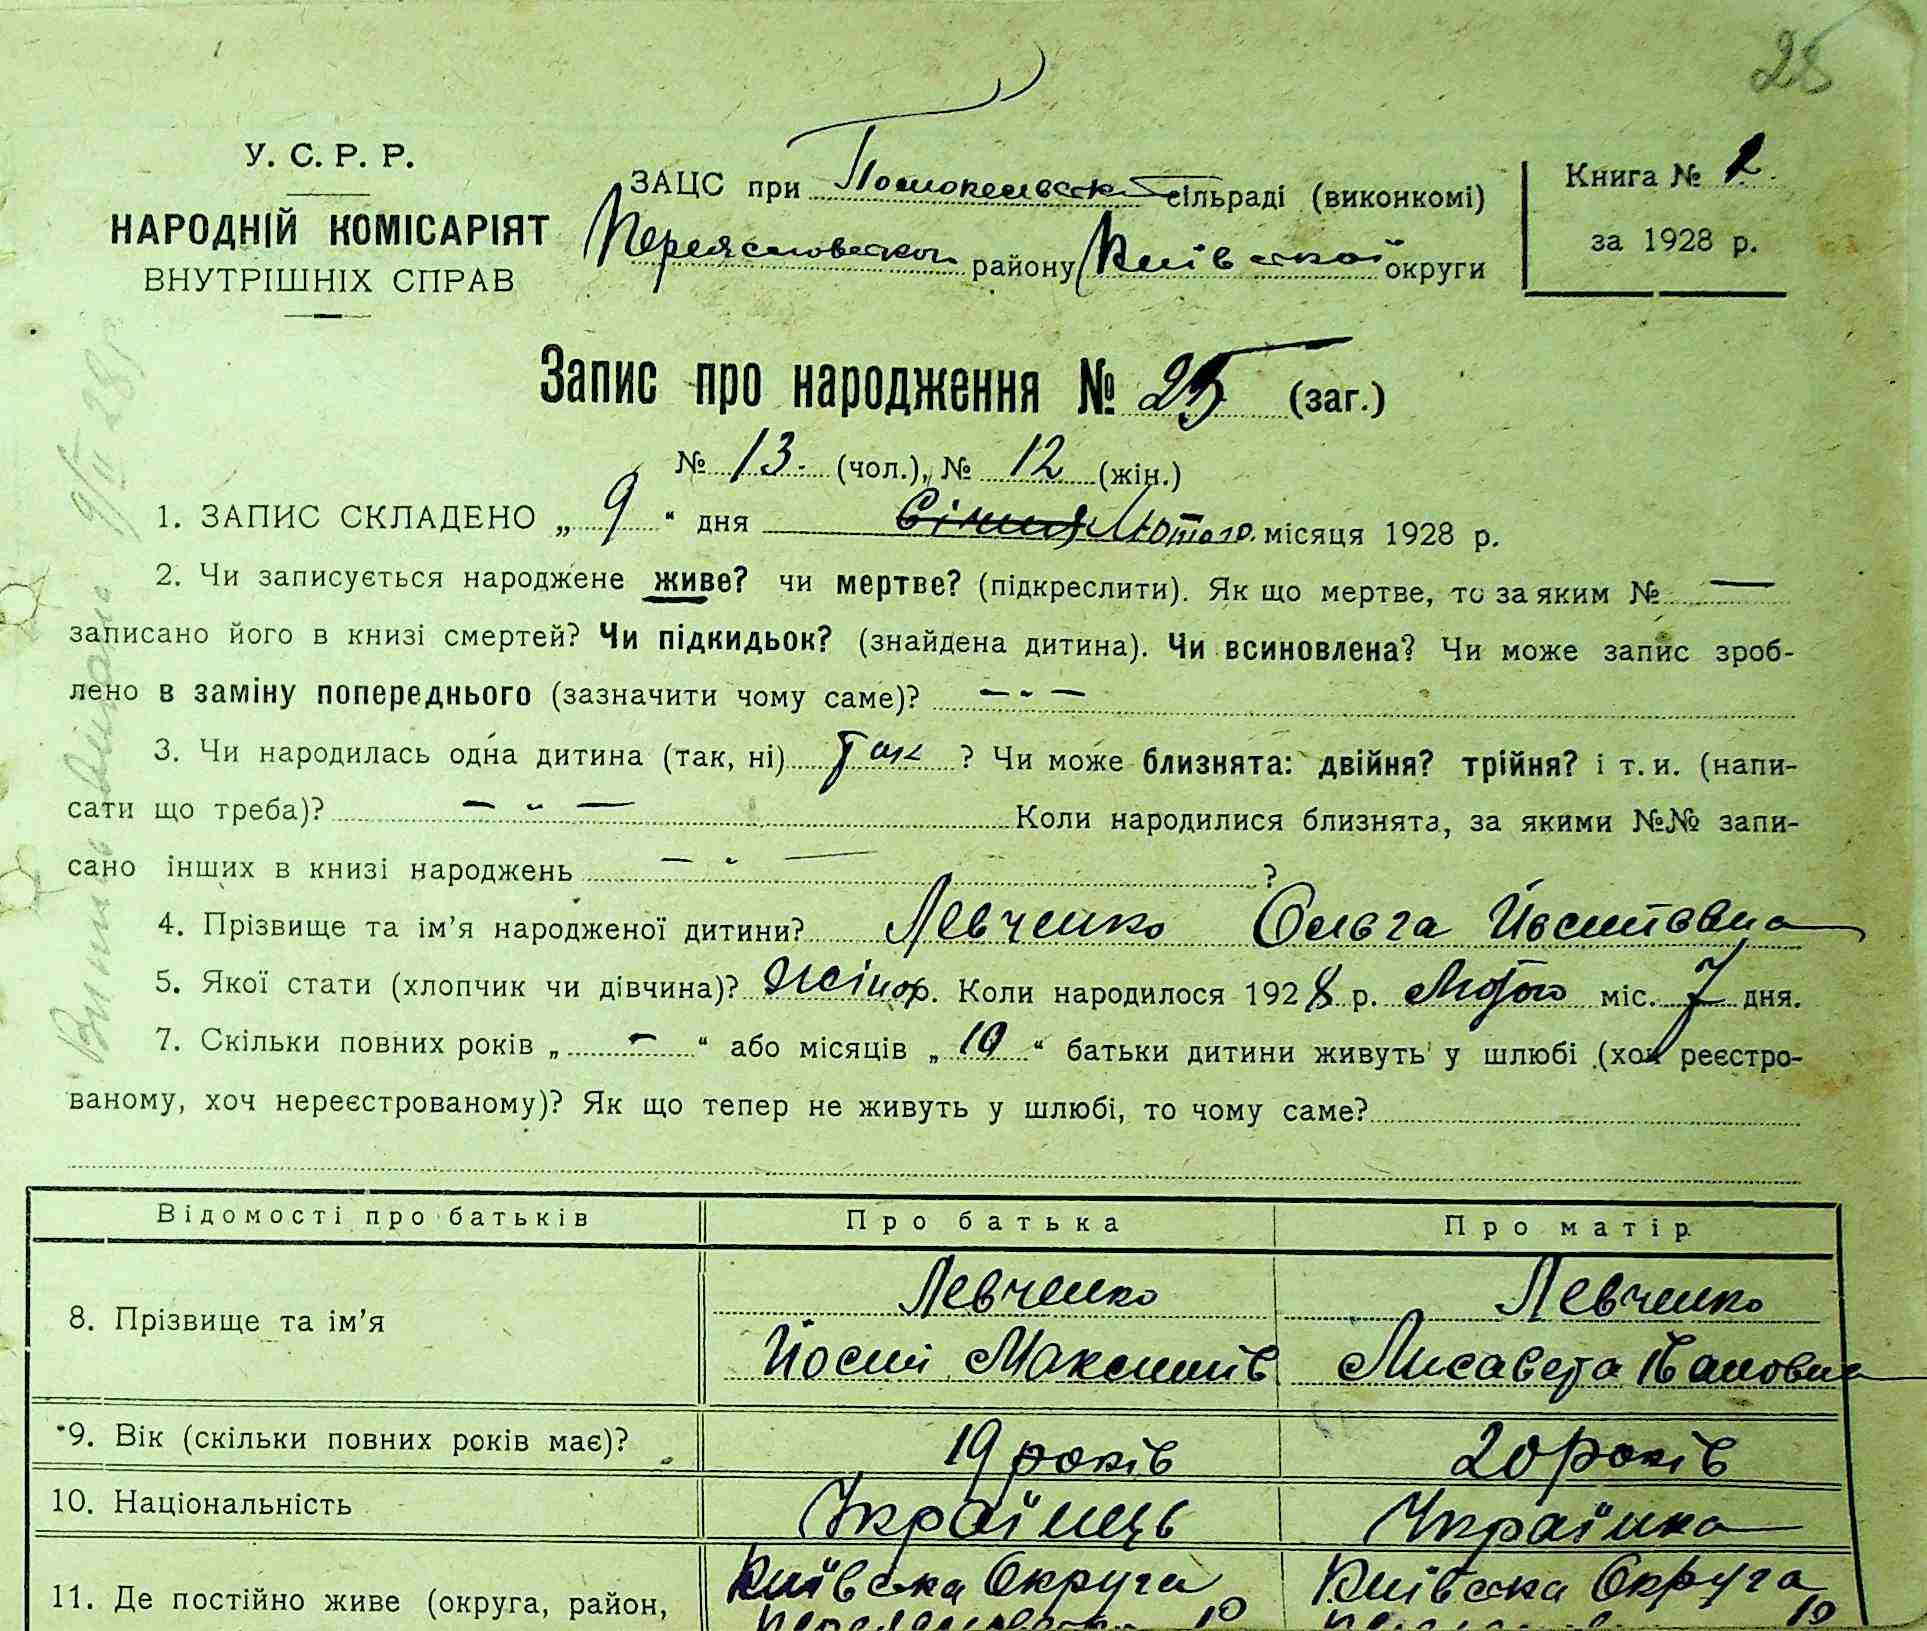 28
У. С. Р. Р.
НАРОДНІЙ КОМІСАРІЯТ
ВНУТРІШНІХ СПРАВ
ЗАЦС при сільраді (виконкомі)
району Київської округи
Книга № 2.
за 1928 р.
Запис про народження № 25 (заг.)
№ 13. (чол.), № 12 (жін.)
1. ЗАПИС СКЛАДЕНО „ 9 “ дня Січня Лютого місяця 1928 р.
2. Чи записується народжене живе? чи мертве? (підкреслити). Як що мертве, то за яким № —
записано його в книзі смертей? Чи підкидьок? (знайдена дитина). Чи всиновлена? Чи може запис зроб-
лено в заміну попереднього (зазначити чому саме)? — „ —
3. Чи народилась одна дитина (так, ні) Так ? Чи може близнята: двійня? трійня? і т. и. (напи-
сати що треба)? — „ — Коли народилися близнята, за якими №№ запи-
сано інших в книзі народжень — „ — ?
4. Прізвище та ім’я народженої дитини? Левченко Ольга Йосипівна
5. Якої стати (хлопчик чи дівчина)? Жіноч. Коли народилося 1928 р. Лютого міс. 7 дня.
7. Скільки повних років „ - “ або місяців „ 10 “ батьки дитини живуть у шлюбі (хоч реєстро-
ваному, хоч нереєстрованому)? Як що тепер не живуть у шлюбі, то чому саме?
Відомості про батьків Про батька Про матір
8. Прізвище та ім’я Левченко Йосип Максимів Левченко Лисавета Івановна
9. Вік (скільки повних років має)? 19 років 20 років
10. Національність Українець Українка
11. Де постійно живе (округа, район, Київська Округа Київська Округа